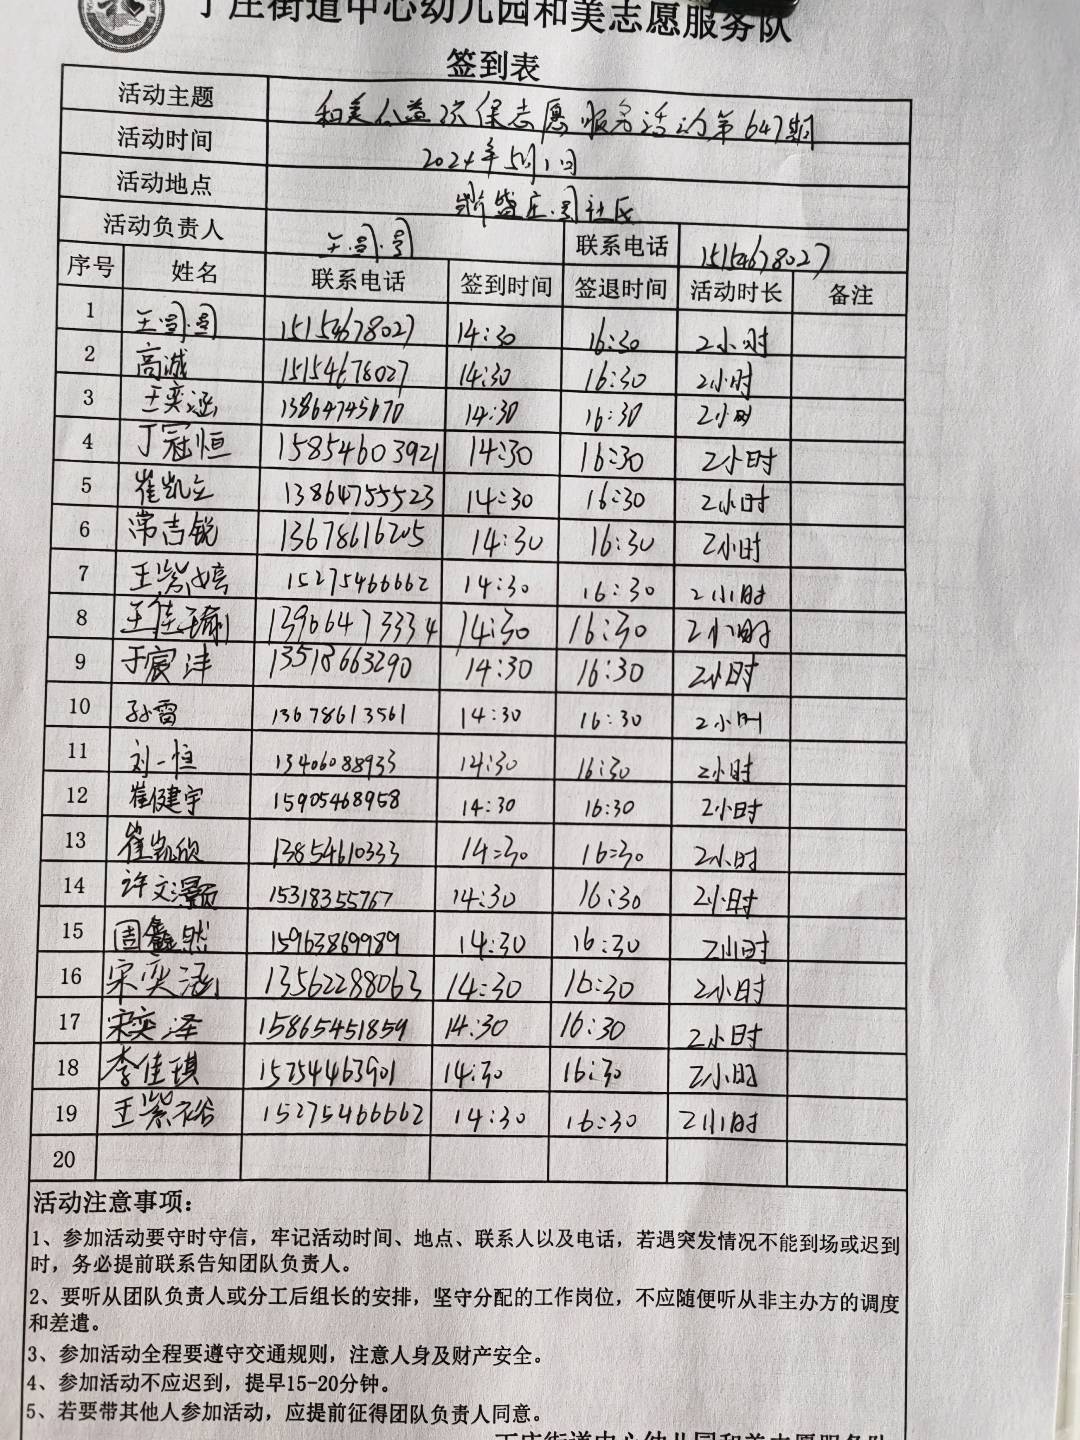 丁庄街道中心幼儿园和美志愿服务队
签到表
活动主题 和美公益环保志愿服务活动第647期
活动时间 2024年5月1日
活动地点 社区
活动负责人 联系电话 15154678027
序号 姓名 联系电话 签到时间 签退时间 活动时长 备注
1 15154678027 14:30 16:30 2小时
2 高诚 15154678027 14:30 16:30 2小时
3 王奕涵 13864745670 14:30 16:30 2小时
4 丁冠恒 15854603921 14:30 16:30 2小时
5 崔凯立 13864755523 14:30 16:30 2小时
6 常吉锐 13678616205 14:30 16:30 2小时
7 王紫婷 15275466662 14:30 16:30 2小时
8 王佳瑜 13906473334 14:30 16:30 2小时
9 于宸沣 13518663290 14:30 16:30 2小时
10 孙雷 13678613561 14:30 16:30 2小时
11 刘一恒 13406088933 14:30 16:30 2小时
12 崔健宇 15905468958 14:30 16:30 2小时
13 崔凯欣 13854610333 14:30 16:30 2小时
14 许文灏 15318355767 14:30 16:30 2小时
15 周鑫然 15963869989 14:30 16:30 2小时
16 宋奕涵 13562288063 14:30 16:30 2小时
17 宋奕泽 15865451859 14:30 16:30 2小时
18 李佳琪 15754463901 14:30 16:30 2小时
19 王紫裕 15275466662 14:30 16:30 2小时
20
活动注意事项：
1、参加活动要守时守信，牢记活动时间、地点、联系人以及电话，若遇突发情况不能到场或迟到
时，务必提前联系告知团队负责人。
2、要听从团队负责人或分工后组长的安排，坚守分配的工作岗位，不应随便听从非主办方的调度
和差遣。
3、参加活动全程要遵守交通规则，注意人身及财产安全。
4、参加活动不应迟到，提早15-20分钟。
5、若要带其他人参加活动，应提前征得团队负责人同意。
丁庄街道中心幼儿园和美志愿服务队